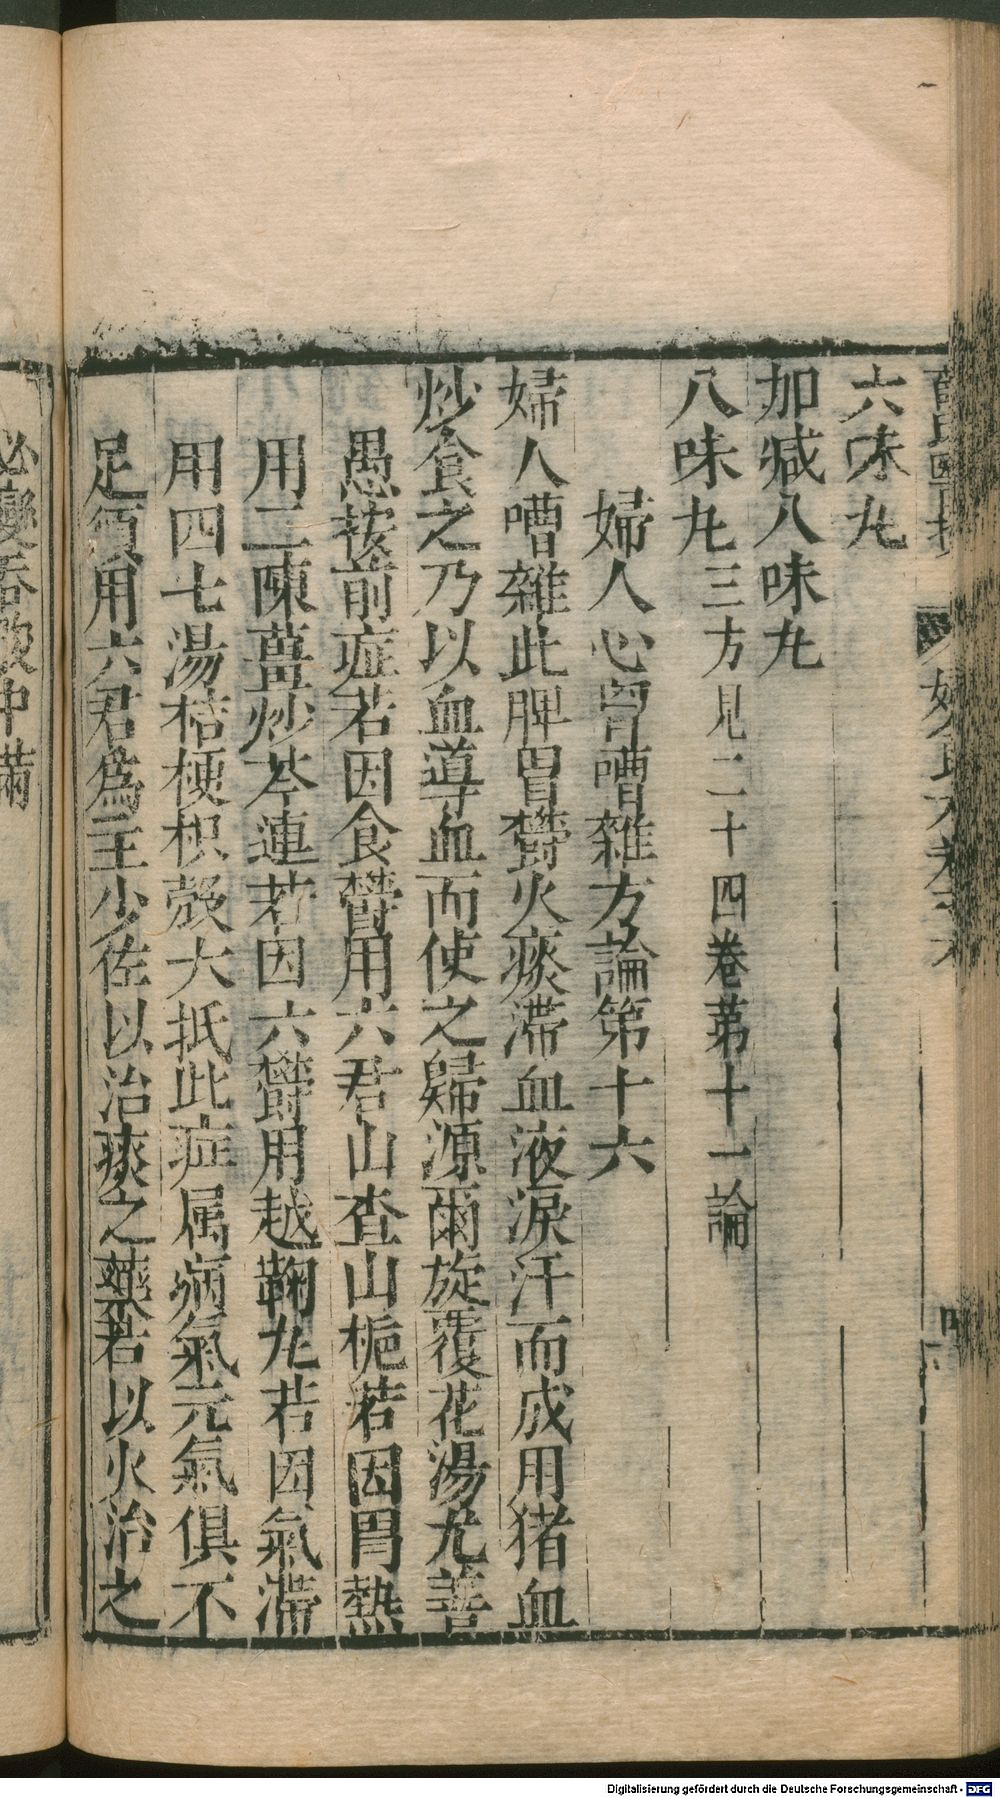 六味丸
加减八味丸
八味丸三方見二十四卷第十一論
婦人心胷嘈雜方論第十六
婦人嘈雜此脾胃欝火痰滯血液淚汗而成用猪血
炒食之乃以血導血而使之歸源爾旋覆花湯尤善
愚按前症若因食欝用六君山査山梔若因胃熱
用二陳薑炒芩連若因六欝用越鞠丸若因氣滯
用四七湯桔梗枳殼大抵此症属病氣元氣俱不
足須用六君爲主少佐以治痰之藥若以火治之
必變吞酸中滿
Digitalisierung gefördert durch die Deutsche Forschungsgemeinschaft - DFG